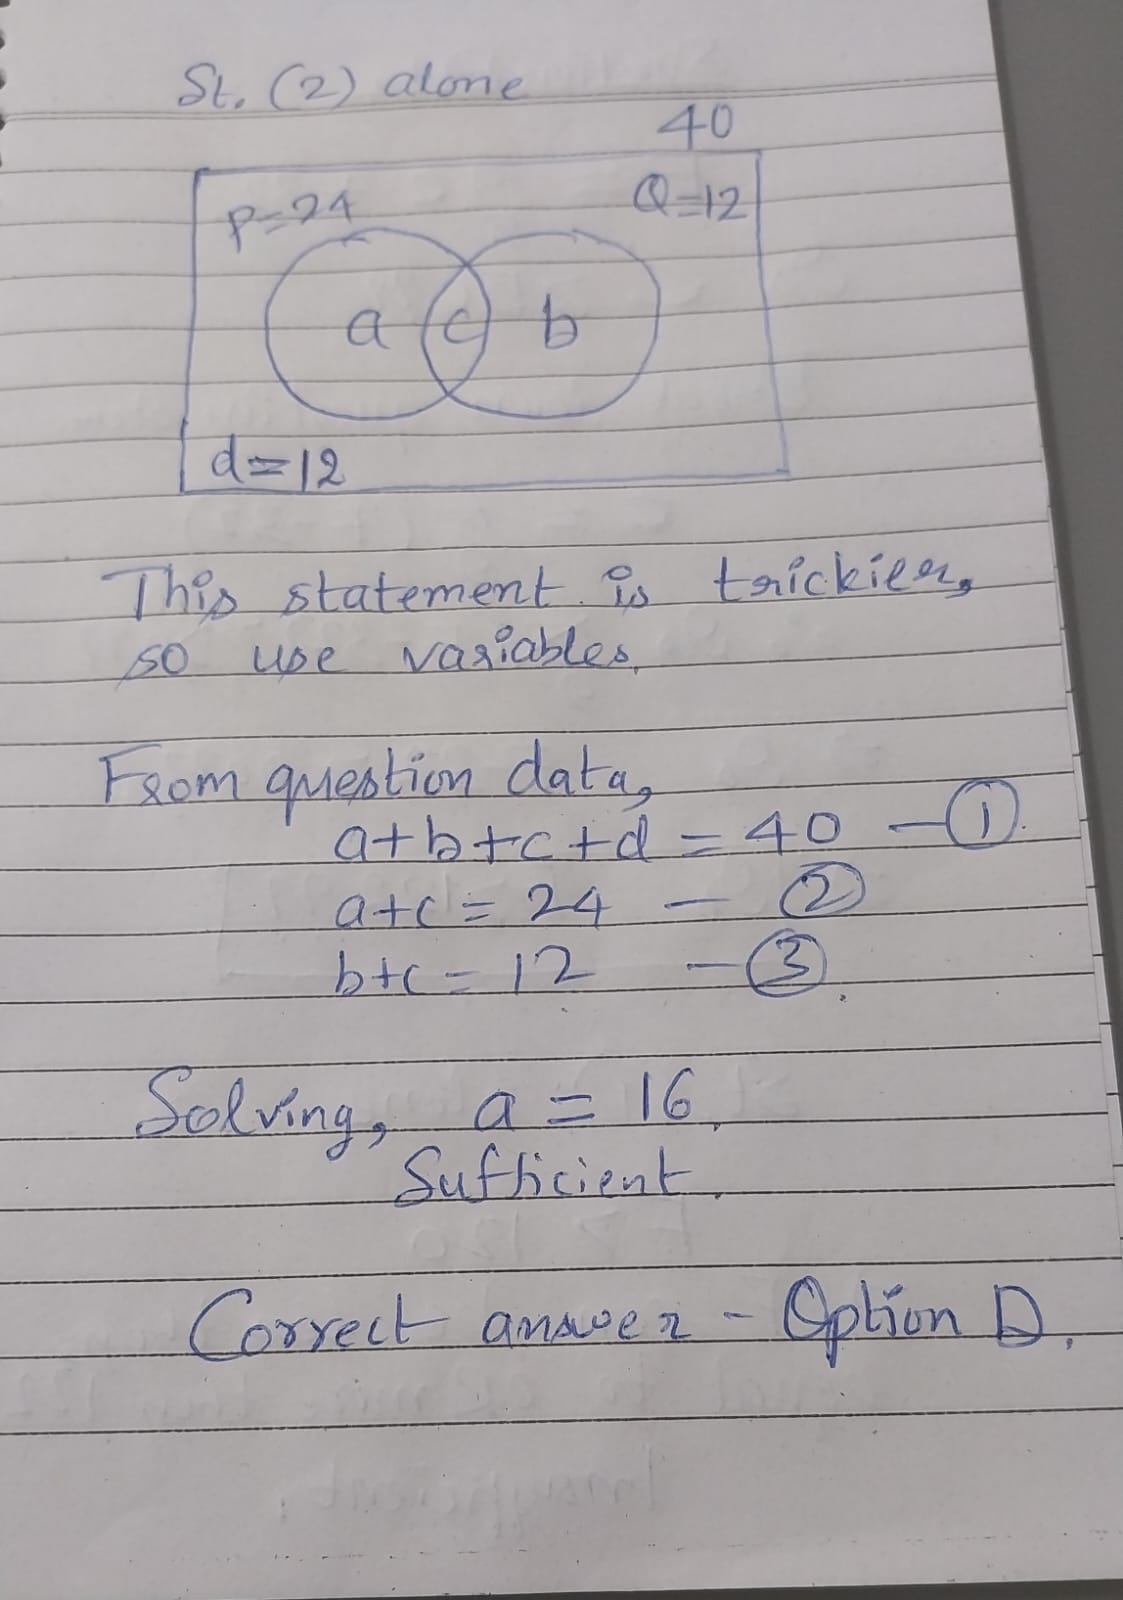 St. (2) alone
40
P=24 Q=12
a c b
d=12
This statement is trickier,
so use variables.
From question data,
a+b+c+d = 40 — ①.
a+c = 24 — ②
b+c = 12 — ③.
Solving, a = 16.
Sufficient.
Correct answer - Option D.